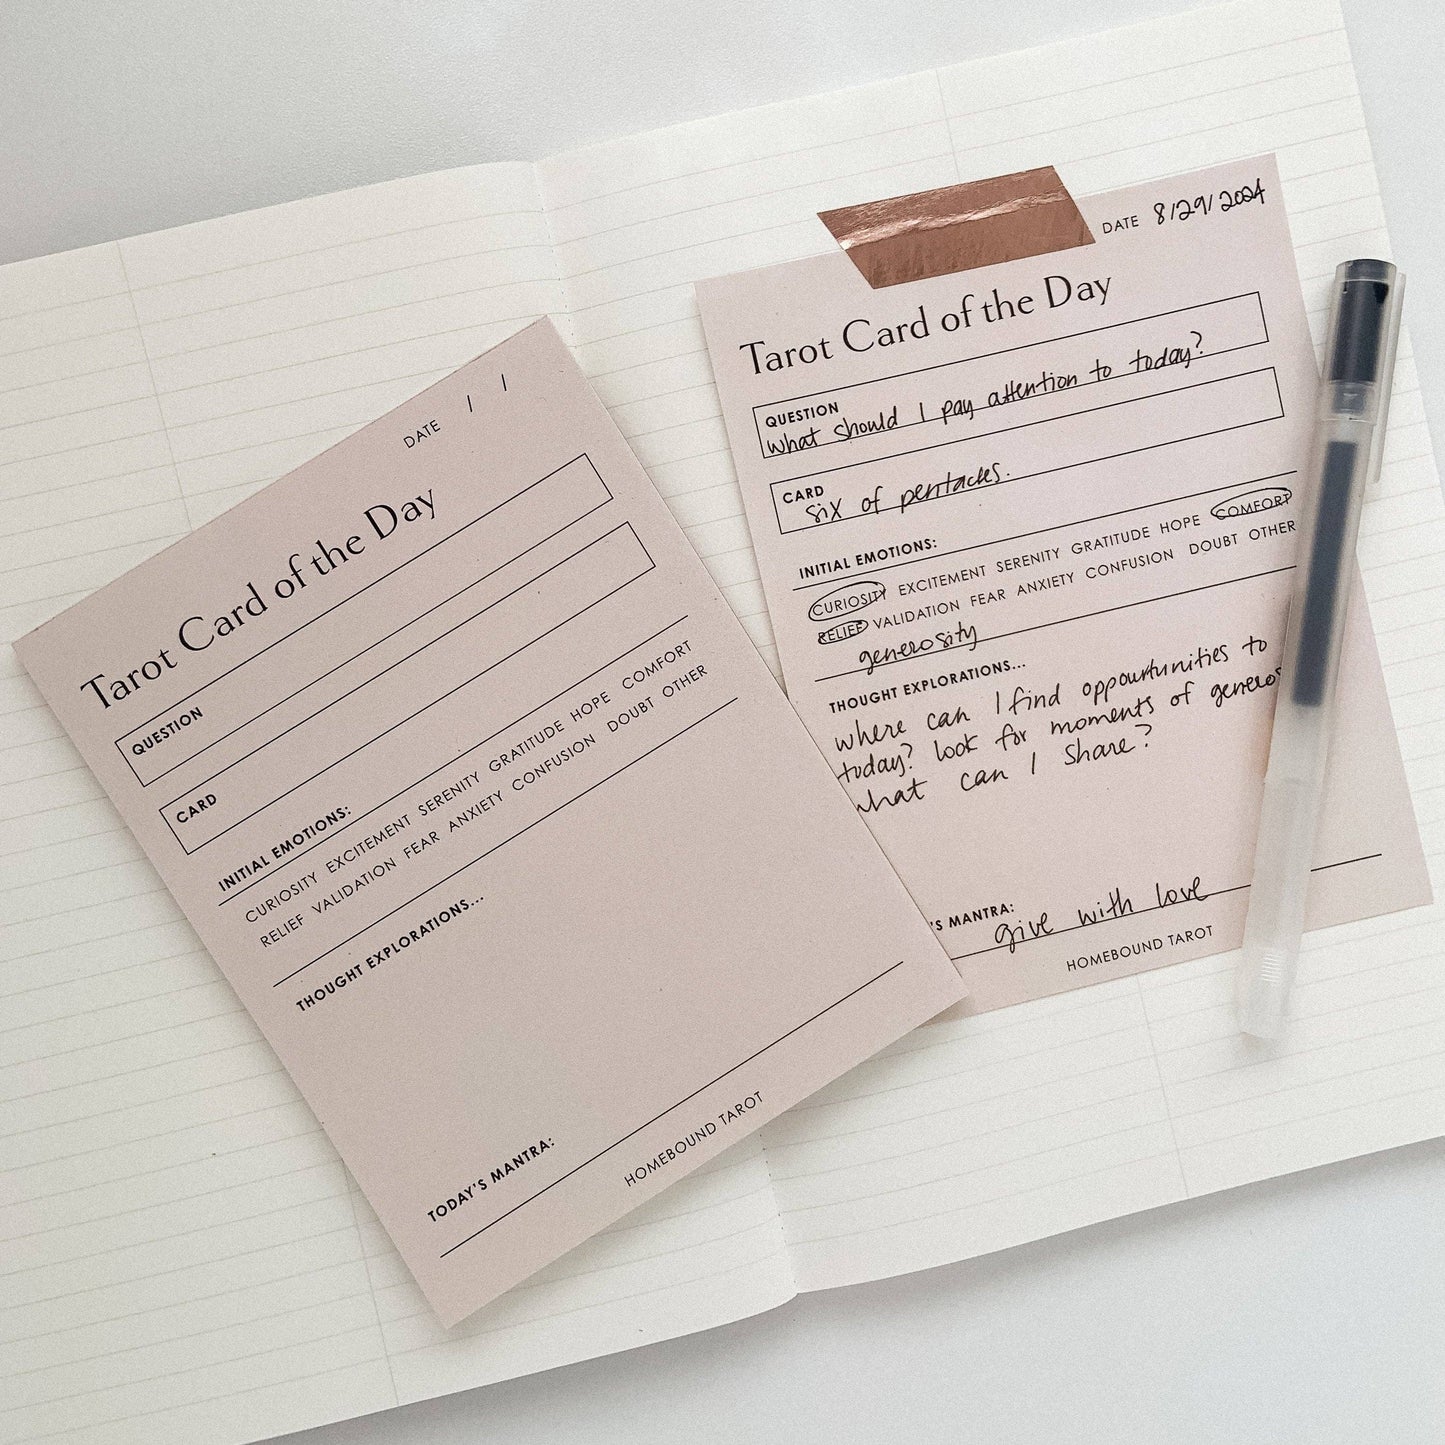 DATE / /
Tarot Card of the Day
QUESTION
CARD
INITIAL EMOTIONS:
CURIOSITY EXCITEMENT SERENITY GRATITUDE HOPE COMFORT
RELIEF VALIDATION FEAR ANXIETY CONFUSION DOUBT OTHER
THOUGHT EXPLORATIONS...
TODAY'S MANTRA:
HOMEBOUND TAROT
DATE 8/29/2024
Tarot Card of the Day
QUESTION
what should I pay attention to today?
CARD
six of pentacles.
INITIAL EMOTIONS:
CURIOSITY EXCITEMENT SERENITY GRATITUDE HOPE COMFORT
RELIEF VALIDATION FEAR ANXIETY CONFUSION DOUBT OTHER
generosity
THOUGHT EXPLORATIONS...
where can I find oppourtunities to
today? look for moments of generos
what can I share?
'S MANTRA:
give with love
HOMEBOUND TAROT